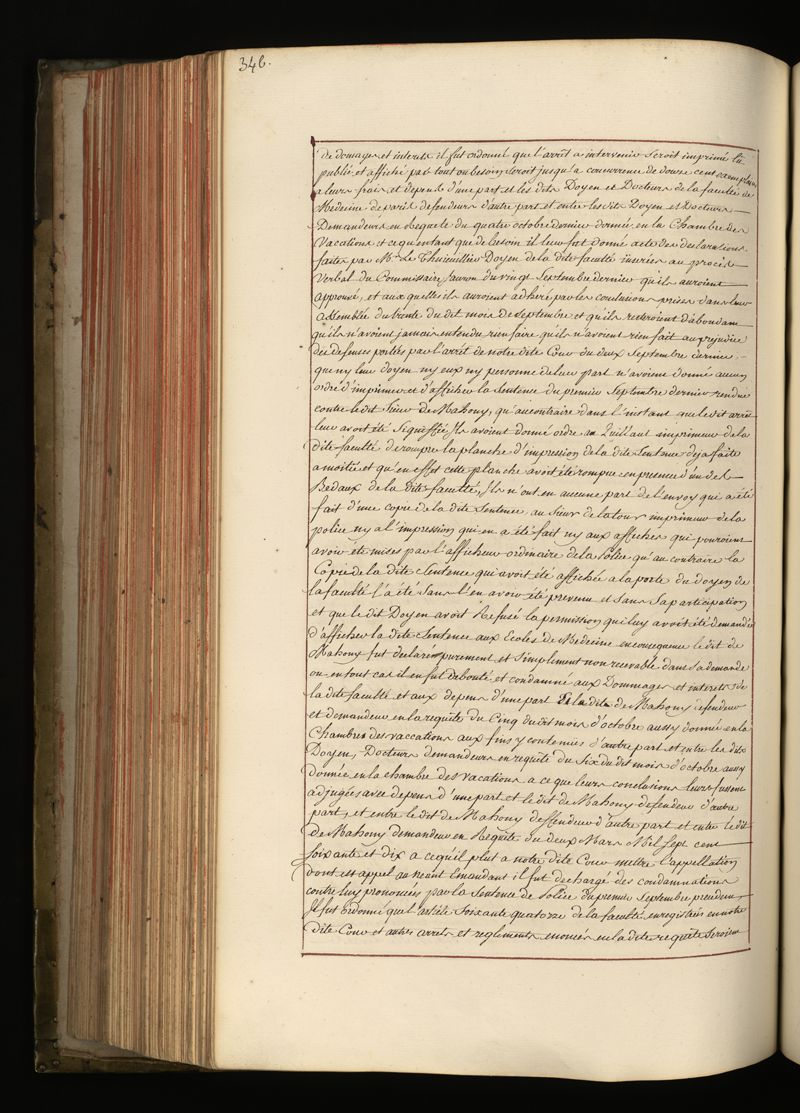 346.
de domages et interets il fut ordonné que l'arrêt a intervenir Seroit imprimé lû
publié et affiché par tout ou besoin Seroit jusqu'a concurrence de douze cent exemplaires
a leurs frais et depens d'une part et les dits Doyen et Docteurs de la faculté de
Medecine de paris defendeurs d'autre part et entre les dits Doyen et Docteurs
Demandeurs en Requete du quatre octobre dernier donnée en la Chambre des
Vacations et ce qu'entant que de besoin il leur fut donné acte des declarations
faites par Mr. Le Thuimullier Doyen de la dite faculté inserées au procès
Verbal du Commissaire du vingt Septembre dernier qu'ils auroient
approuvé, et aux quelles ils auroient adheré par les conclusions prises dans leur
assemblée du trente du dit mois de Septembre et qu'ils d'abondant
qu'ils n'avoient jamais entendu rien faire qu'ils n'avoient rien fait au prejudice
des defenses portées par l'arrêt de notre dite Cour du deux Septembre dernier
que ny leur doyen ny eux ny personne de leur part n'avoient donné aucun
ordre d'imprimer et d'afficher la Sentence du premier Septembre dernier rendue
contre le dit Sieur de Mahony, qu'au contraire dans l'instant que le dit arrêt
leur avoit été Signiffié Ils avoient donné ordre au Quillaut imprimeur de la
dite faculté de rompre la planche d'impression de la dite Sentence deja faite
a moitié et qu'en effet cette planche avoit été rompue en presence d'un des
Bedaux de la dite faculté, Ils n'ont en aucune part de l'envoy qui a été
fait d'une copie de la dite Sentence au Sieur de latour imprimeur de la
police ny a l'impression qui en a été fait ny aux affiches qui pouroient
avoir été mises par l'afficheur ordinaire de la Police qu'au contraire la
Copie de la dite Sentence qui avoit été affichée a la porte du doyen de
la faculté l'a été Sans l'en avoir été prevenu et Sans Sa participation
et que le dit Doyen avoit Refusé la permission qui luy avoit été demandée
d'afficher la dite Sentence aux Ecoles de Medecine en consequence le dit de
Mahony fut declaré purement et Simplement non recevable dans Sa demande
ou en tout cas il en fut debouté et condamné aux Dommages et interets de
la dite faculté et aux depens d'une part Et le dit de Mahony defendeur
et demandeur en la requête du Cinq du dit mois d'octobre aussy donné en la
Chambre des vaccations aux fins y contenues d'autre part et entre les dits
Doyen, Docteurs demandeurs en requête du Six du dit mois d'octobre aussy
donnée en la chambre des vacations a ce que leurs conclusions leur fussent
adjugées avec depens d'une part et le dit de Mahony defendeur d'autre
part, et entre le dit de Mahony deffendeur d'autre part et entre le dit
de Mahony demandeur en Requête du deux Mars Mil Sept cent
soixante et dix a ce qu'il plut a notre dite Cour mettre l'appellation
dont est appel au neant Emandant il fut dechargé des condamnations
contre luy prononcées par la Sentence de Police du premier Septembre precedent
Il fut ordonné que l'article Soixante quatorze de la faculté enregistrées en notre
dite Cour et autres arrets et reglements enoncés en la dite requête Seroient